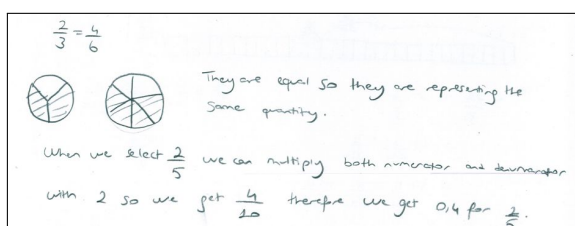 2/3 = 4/6
They are equal so they are representing the
same quantity.
When we select 2/5 we can multiply both numerator and denumarator
with 2 so we get 4/10 therefore we get 0,4 for 2/5.